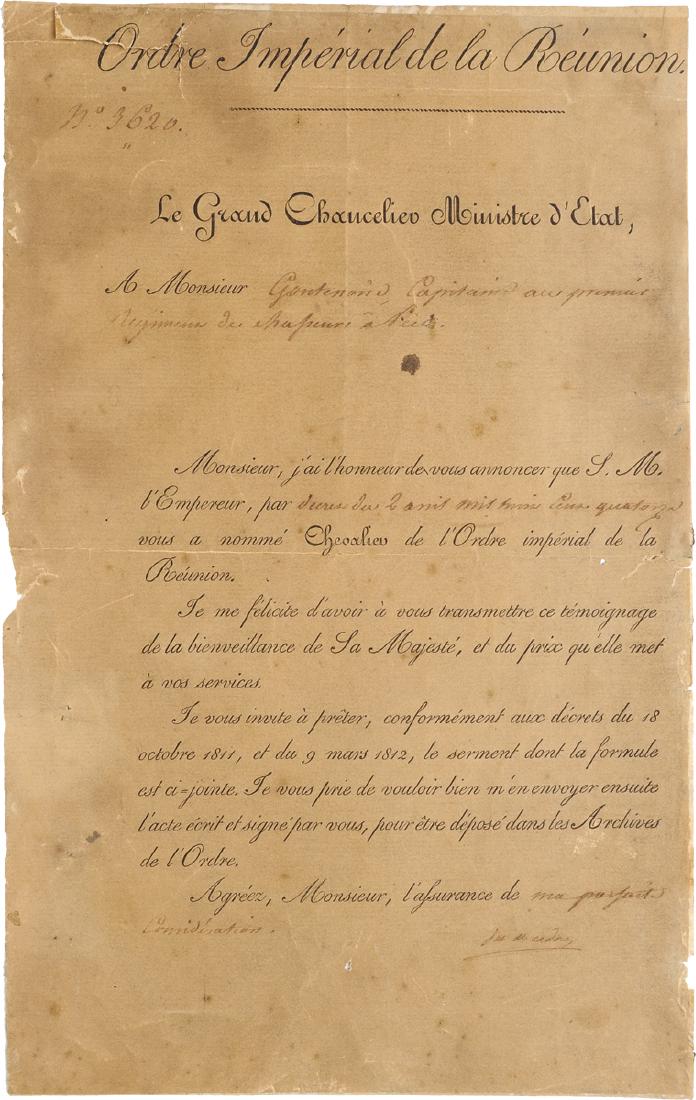 Ordre Impérial de la Réunion.
N.º 3620.
Le Grand Chancelier Ministre d'Etat,
A Monsieur Capitaine au premier
Régiment de chasseurs à
Monsieur, j'ai l'honneur de vous annoncer que S. M.
l'Empereur, par decret du 2 avril mil huit cent quatorze
vous a nommé Chevalier de l'Ordre impérial de la
Réunion.
Je me félicite d'avoir à vous transmettre ce témoignage
de la bienveillance de Sa Majesté, et du prix qu'elle met
à vos services.
Je vous invite à prêter, conformément aux décrets du 18
octobre 1811, et du 9 mars 1812, le serment dont la formule
est ci=jointe. Je vous prie de vouloir bien m'en envoyer ensuite
l'acte écrit et signé par vous, pour être déposé dans les Archives
de l'Ordre.
Agréez, Monsieur, l'assurance de ma parfaite
considération.